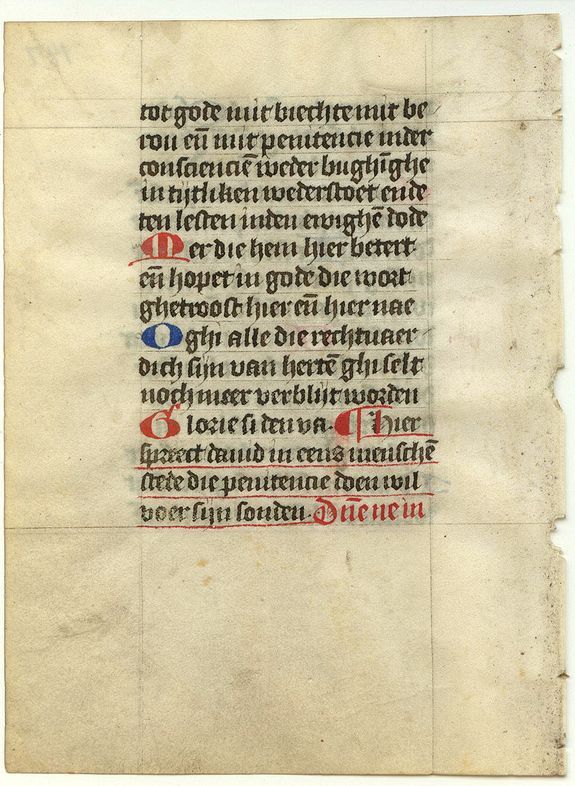 tot gode mit biechte mit be
rou en̄ mit penitencie inder
conscienciē weder bughīghe
in tijtliken wederstoet ende
ten lesten inden ewighē dode
Mer die hem hier betert
en̄ hopet in gode die wort
ghetroost hier en̄ hier nae
Oghi alle die rechtuaer
dich sijn van hertē ghi selt
noch meer verblijt worden
Glorie si den va. Hier
spreect dauid in eens menschē
stede die penitencie doen wil
voer sijn sonden. Dn̄e ne in